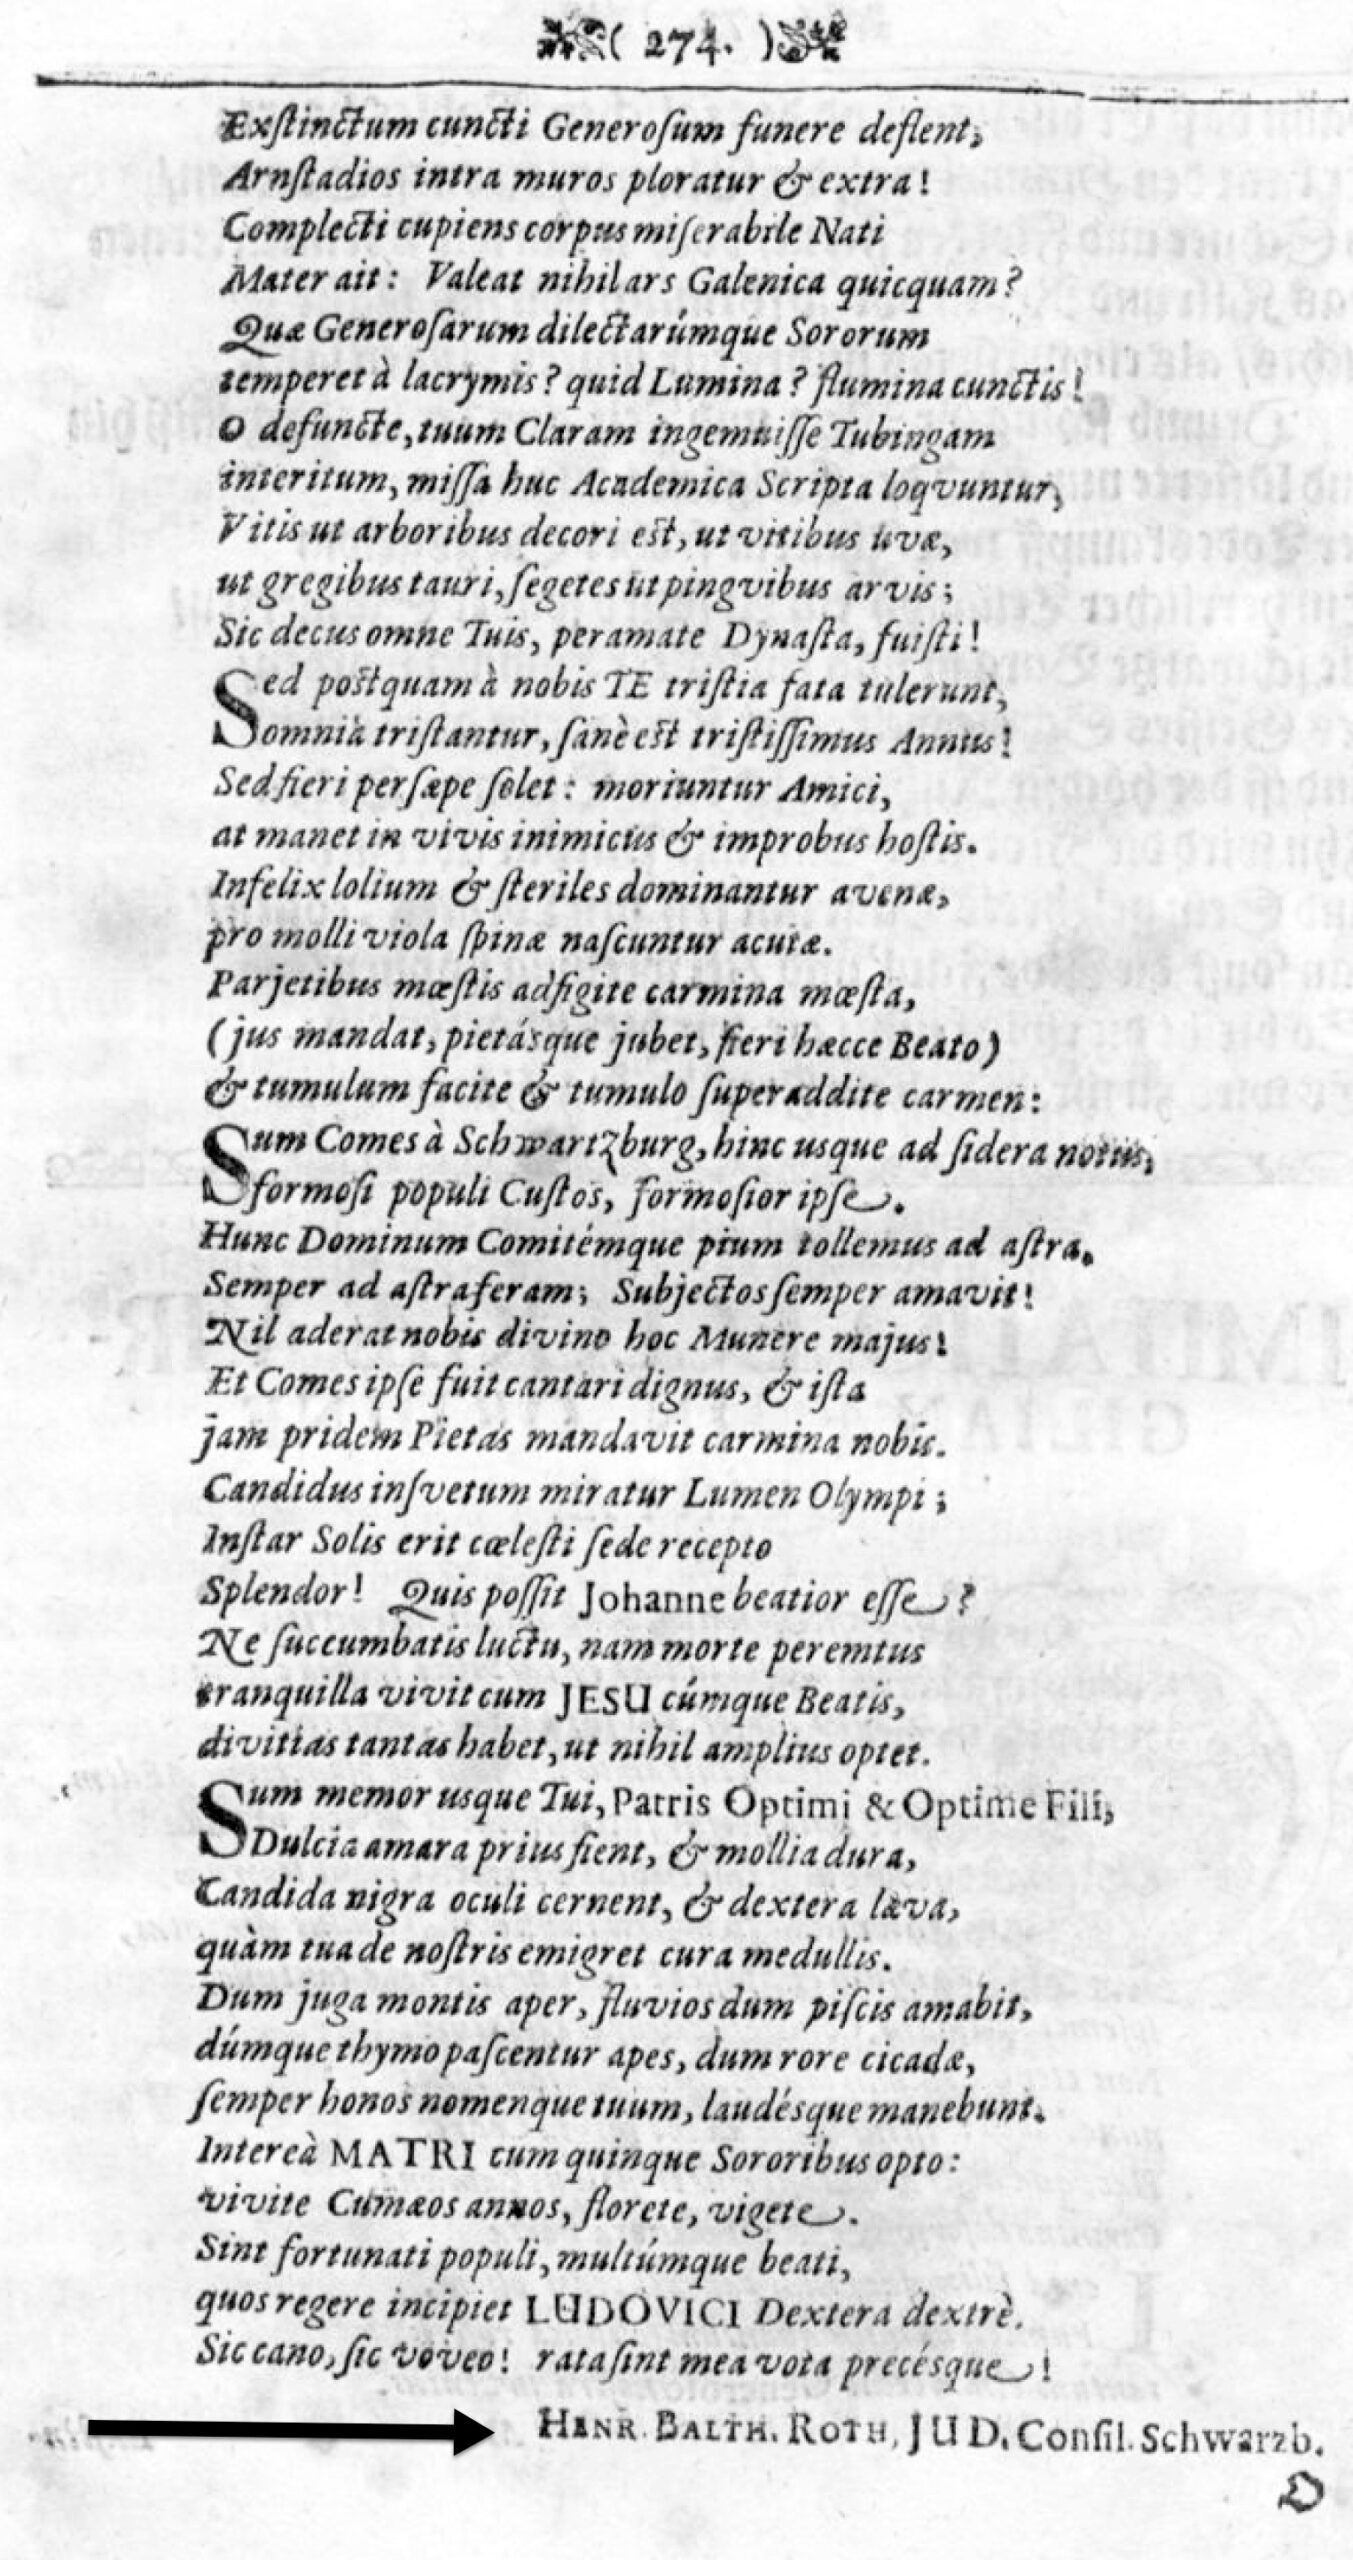 ( 274. )
Exſtinctum cuncti Generoſum funere deflent,
Arnſtadios intra muros ploratur & extra!
Complecti cupiens corpus miſerabile Nati
Mater ait: Valeat nihil ars Galenica quicquam?
Quæ Generoſarum dilectarúmque Sororum
temperet à lacrymis? quid Lumina? flumina cunctis!
O defuncte, tuum Claram ingemuiſſe Tubingam
interitum, miſſa huc Academica Scripta loqvuntur,
Vitis ut arboribus decori eſt, ut vitibus uvæ,
ut gregibus tauri, ſegetes ut pingvibus arvis;
Sic decus omne Tuis, peramate Dynaſta, fuiſti!
Sed poſtquam à nobis TE triſtia fata tulerunt,
omnia triſtantur, ſanè eſt triſtiſſimus Annus!
Sed fieri perſæpe ſolet: moriuntur Amici,
at manet in vivis inimicus & improbus hoſtis.
Infelix lolium & ſteriles dominantur avenæ,
pro molli viola ſpinæ naſcuntur acutæ.
Parjetibus mœſtis adfigite carmina mœſta,
(jus mandat, pietásque jubet, fieri hæcce Beato)
& tumulum facite & tumulo ſuperaddite carmen:
Sum Comes à Schwartzburg, hinc usque ad ſidera notus,
formoſi populi Cuſtos, formoſior ipſe.
Hunc Dominum Comitémque pium tollemus ad aſtra.
Semper ad aſtra feram; Subjectos ſemper amavit!
Nil aderat nobis divino hoc Munere majus!
Et Comes ipſe fuit cantari dignus, & iſta
jam pridem Pietas mandavit carmina nobis.
Candidus inſvetum miratur Lumen Olympi;
Inſtar Solis erit cœleſti ſede recepto
Splendor! Quis poſſit Johanne beatior eſſe?
Ne ſuccumbatis luctu, nam morte peremtus
tranquilla vivit cum JESU cúmque Beatis,
divitias tantas habet, ut nihil amplius optet.
Sum memor usque Tui, Patris Optimi & Optime Fili,
Dulcia amara prius fient, & mollia dura,
Candida nigra oculi cernent, & dextera læva,
quàm tua de noſtris emigret cura medullis.
Dum juga montis aper, fluvios dum piſcis amabit,
dúmque thymo paſcentur apes, dum rore cicadæ,
ſemper honos nomenque tuum, laudésque manebunt.
Intereà MATRI cum quinque Sororibus opto:
vivite Cumæos annos, florete, vigete.
Sint fortunati populi, multúmque beati,
quos regere incipiet LUDOVICI Dextera dextrè.
Sic cano, ſic voveo! rata ſint mea vota precésque!
HENR. BALTH. ROTH, JUD. Conſil. Schwarzb.